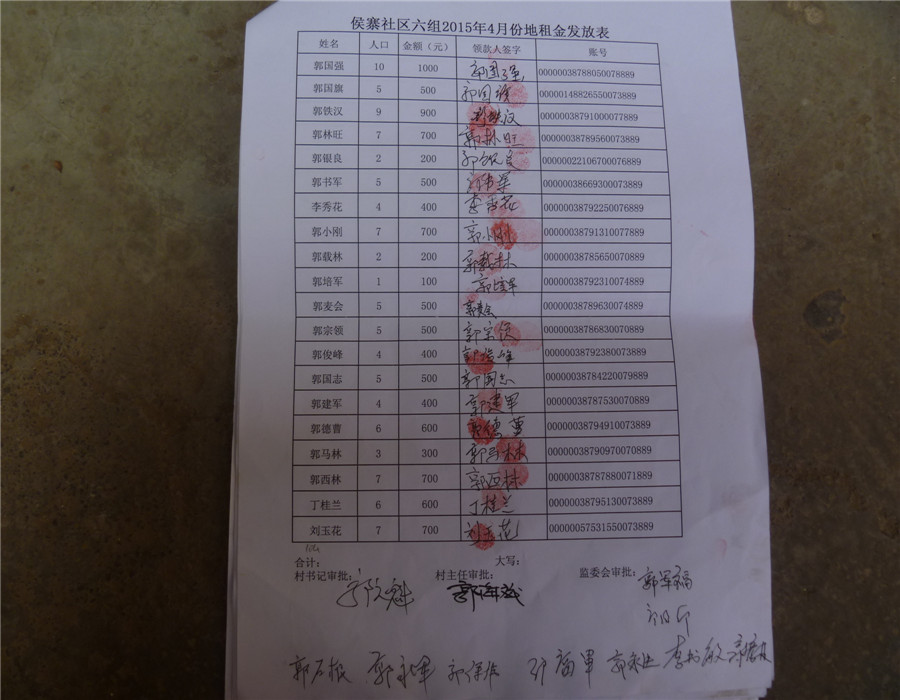 侯寨社区六组2015年4月份地租金发放表
姓名 人口 金额（元） 领款人签字 账号
郭国强 10 1000 郭国强 00000038788050078889
郭国旗 5 500 郭国旗 00000148826550073889
郭铁汉 9 900 郭铁汉 00000038791000077889
郭林旺 7 700 郭林旺 00000038789560073889
郭银良 2 200 郭银良 00000022106700076889
郭书军 5 500 郭书军 00000038669300073889
李秀花 4 400 李秀花 00000038792250076889
郭小刚 7 700 郭小刚 00000038791310077889
郭载林 2 200 郭载林 00000038785650070889
郭培军 1 100 郭培军 00000038792310074889
郭麦会 5 500 郭麦会 00000038789630074889
郭宗领 5 500 郭宗领 00000038786830070889
郭俊峰 4 400 郭俊峰 00000038792380073889
郭国志 5 500 郭国志 00000038784220079889
郭建军 4 400 郭建军 00000038787530070889
郭德曹 6 600 郭德曹 00000038794910073889
郭马林 3 300 郭马林 00000038790970070889
郭西林 7 700 郭西林 00000038787880071889
丁桂兰 6 600 丁桂兰 00000038795130073889
刘玉花 7 700 刘玉花 00000057531550073889
合计： 大写：
村书记审批： 村主任审批： 监委会审批：
郭石根 郭永军 郭保法